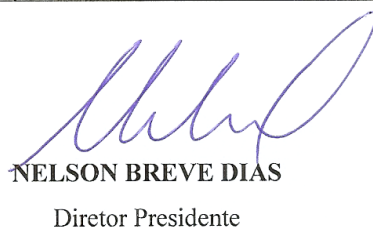 NELSON BREVE DIAS
Diretor Presidente